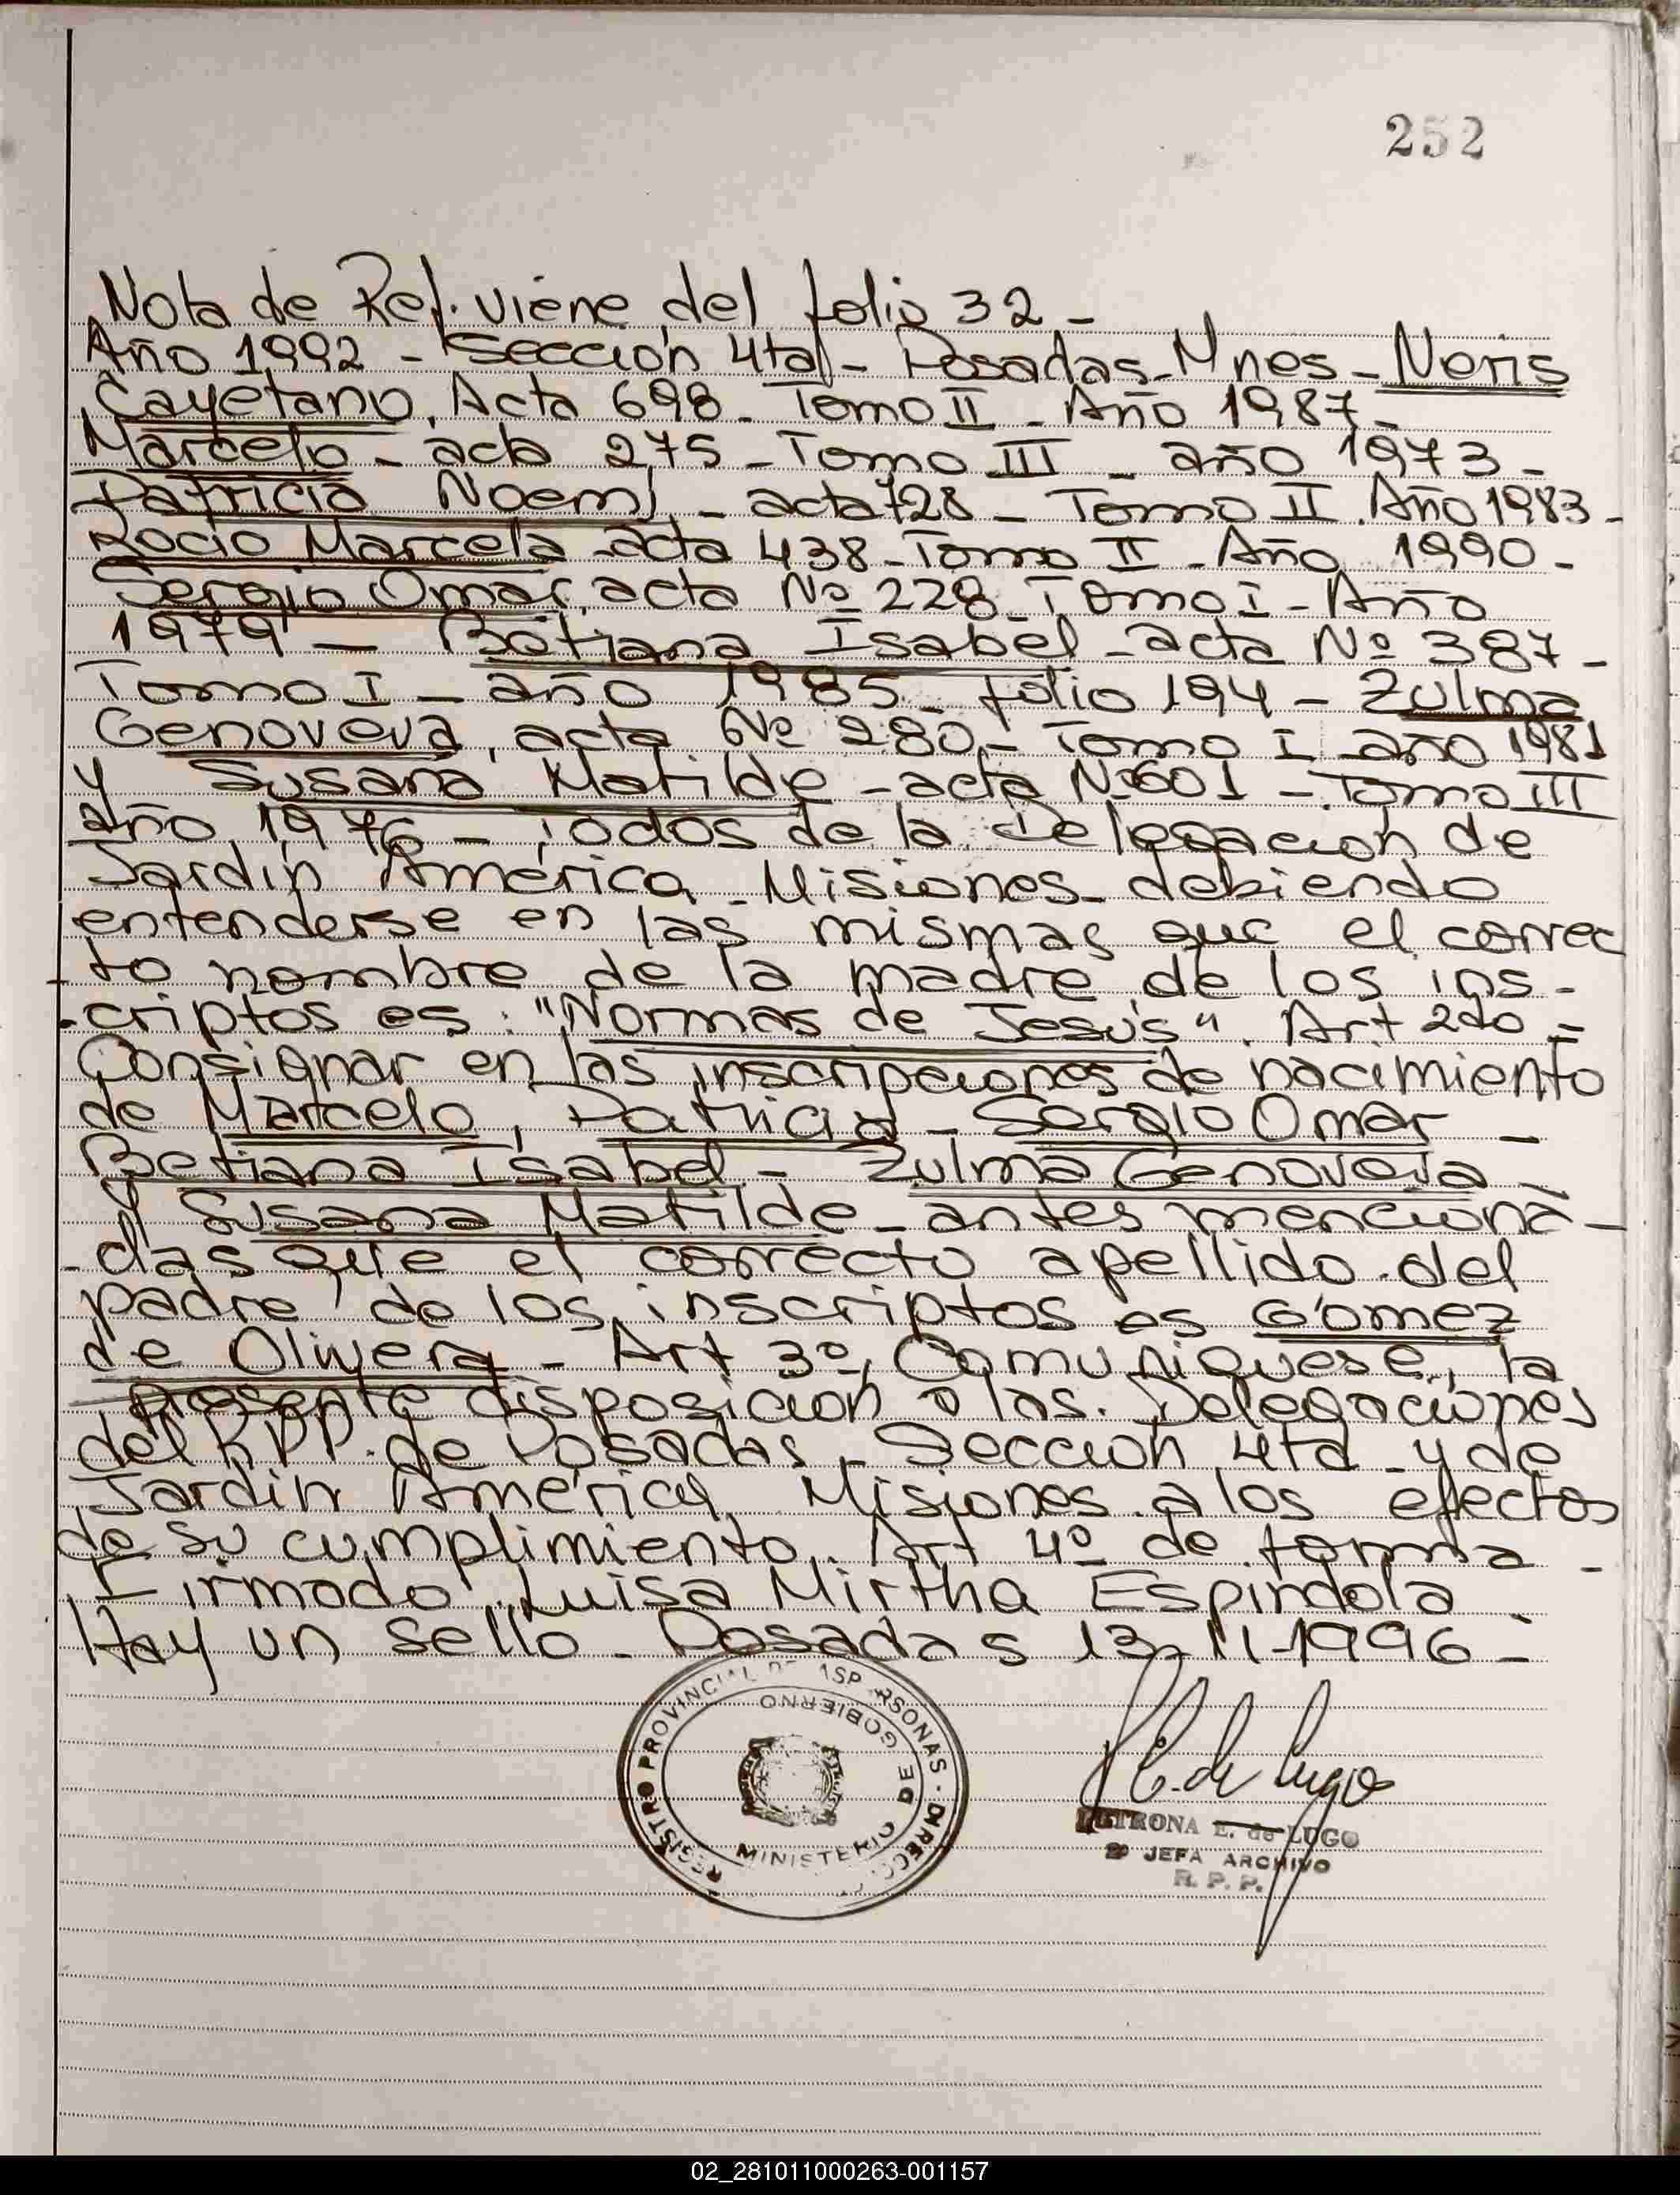 252
Nota de Ref. viene del folio 32 -
Año 1992 - Sección 4ta - Posadas - Mnes - Neris
Cayetano, Acta 698 - Tomo II - Año 1987 -
Marcelo - acta 275 - Tomo III - año 1973 -
Patricia Noemí - acta 728 - Tomo II . Año 1983 -
Rocio Marcela - acta 438 - Tomo II - Año 1990 -
Sergio Omar, acta Nº 228 - Tomo I - Año
1979 - Betiana Isabel - acta Nº 387 -
Tomo I - año 1985 - folio 194 - Zulma
Genoveva, acta Nº 280 - Tomo I año 1981
y Susana Matilde - acta Nº 601 - Tomo III
año 1976 - Todos de la Delegación de
Jardín América - Misiones - debiendo
entenderse en las mismas que el correc
to nombre de la madre de los ins -
-criptos es: "Normas de Jesús". Art 2do =
Consignar en las inscripciones de nacimiento
de Marcelo, Patricia - Sergio Omar -
Betiana Isabel - Zulma Genoveva -
y Susana Matilde - antes menciona -
-das que el correcto apellido del
padre de los inscriptos es Gómez
de Olivera - Art 3º, Comuníquese, la
presente disposición a las Delegaciones
del R.P.P. de Posadas - Sección 4ta - y de
Jardín América Misiones a los efectos
de su cumplimiento. Art 4º de forma -
Firmado Luisa Mirtha Espindola -
Hay un sello - Posadas 13-11-1996 -
REGISTRO PROVINCIAL DE LAS PERSONAS - DIRECC
MINISTERIO DE GOBIERNO
P E. de Lugo
PETRONA E. de LUGO
2º JEFA ARCHIVO
R. P. P.
02_281011000263-001157